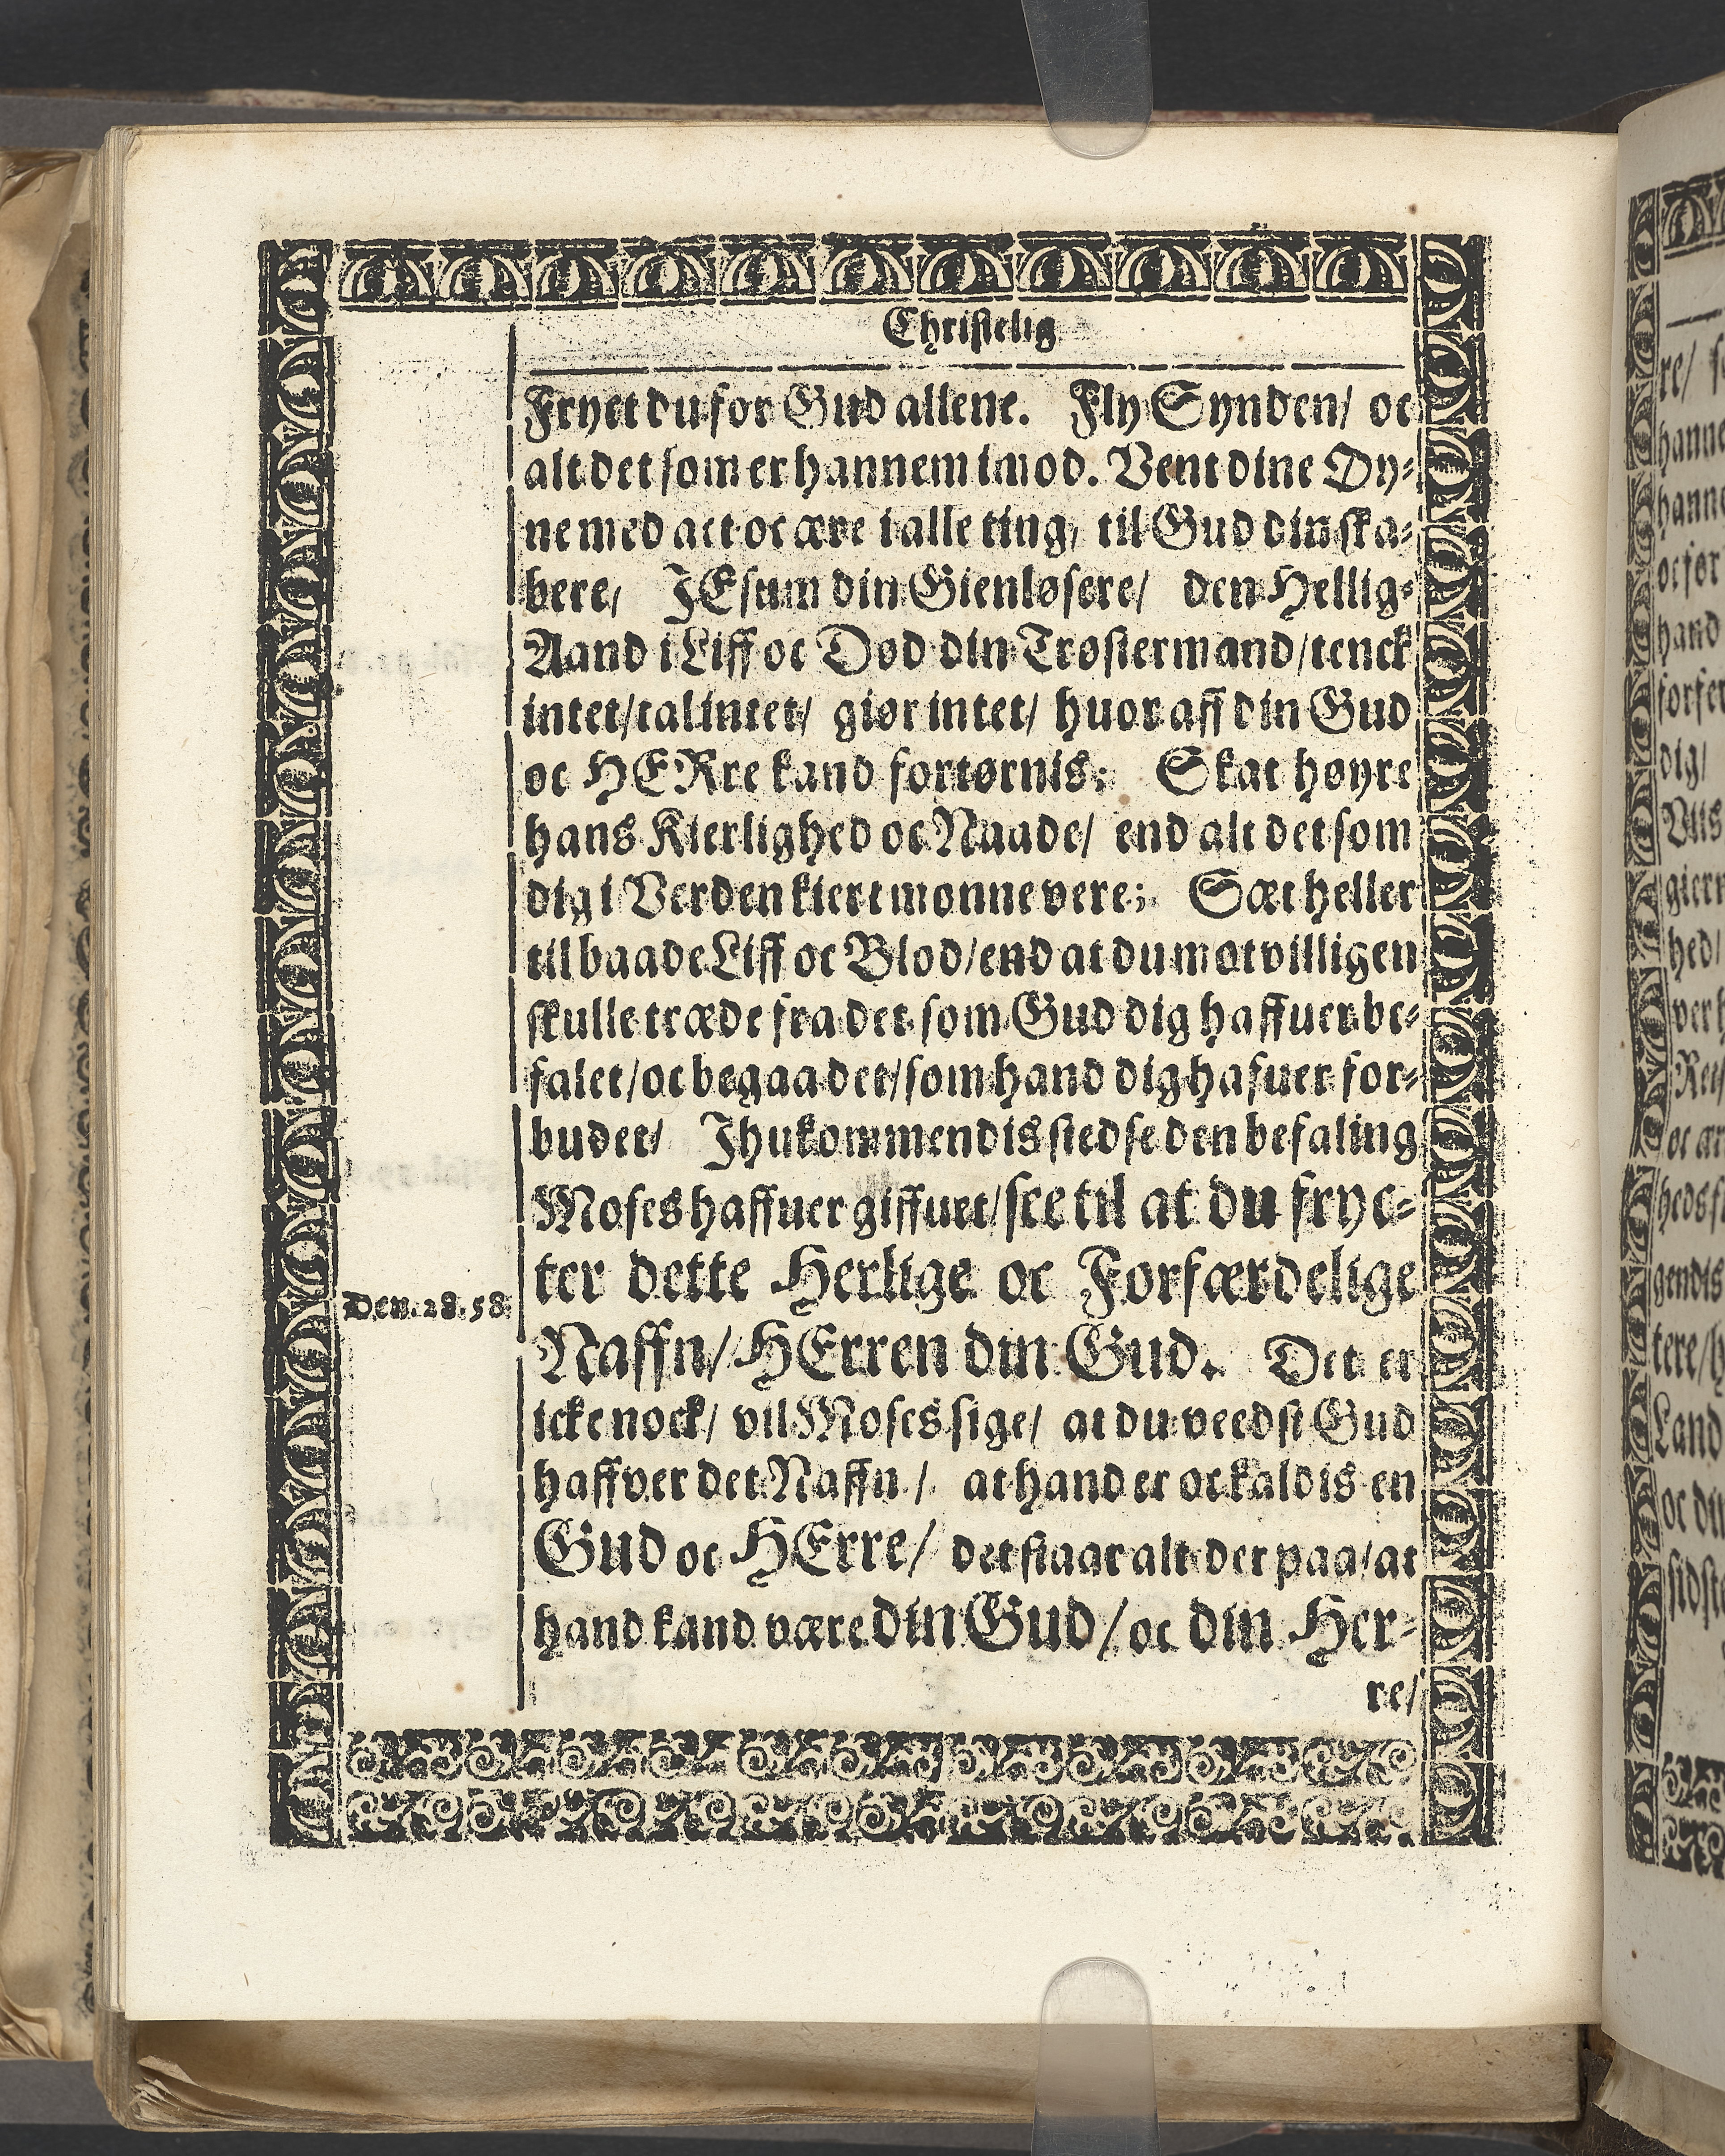 Christelig
Fryct du for Gud allene. Fly Synden/ oc
alt det som er hannem imod. Vent dine Øy-
ne med act oc ære i alle ting, til Gud din ska-
bere, JEsum din Gienløsere/ den Hellig-
Aand i Liff oc Død din Trøstermand/tenck
intet/tal intet/ giør intet/ huor aff din Gud
oc HERre kand fortørnis; Skat høyre
hans Kierlighed oc Naade/ end alt det som
dig i Verden kiert monne vere; Sæt heller
til baade Liff oc Blod/end at du motvilligen
skulle træde fra det som Gud dig haffuer be-
falet/oc begaa det/som hand dig hafuer for-
budet/ Jhukommendis stedse den befaling
Moses haffuer giffuet/see til at du fryc-
ter dette Herlige oc Forfærdelige
Den. 28. 58.
Naffn/HErren din Gud. Det er
icke nock/ vil Moses sige/ at du veedst Gud
haffver det Naffn/ at hand er oc kaldis en
Gud oc HErre/ det staar alt der paa/at
hand kand være din Gud/oc din Her-
re/
re/
hanne
hanne
oc for
hand
forfer
dig/
hed/
gendis
tere/h
Land